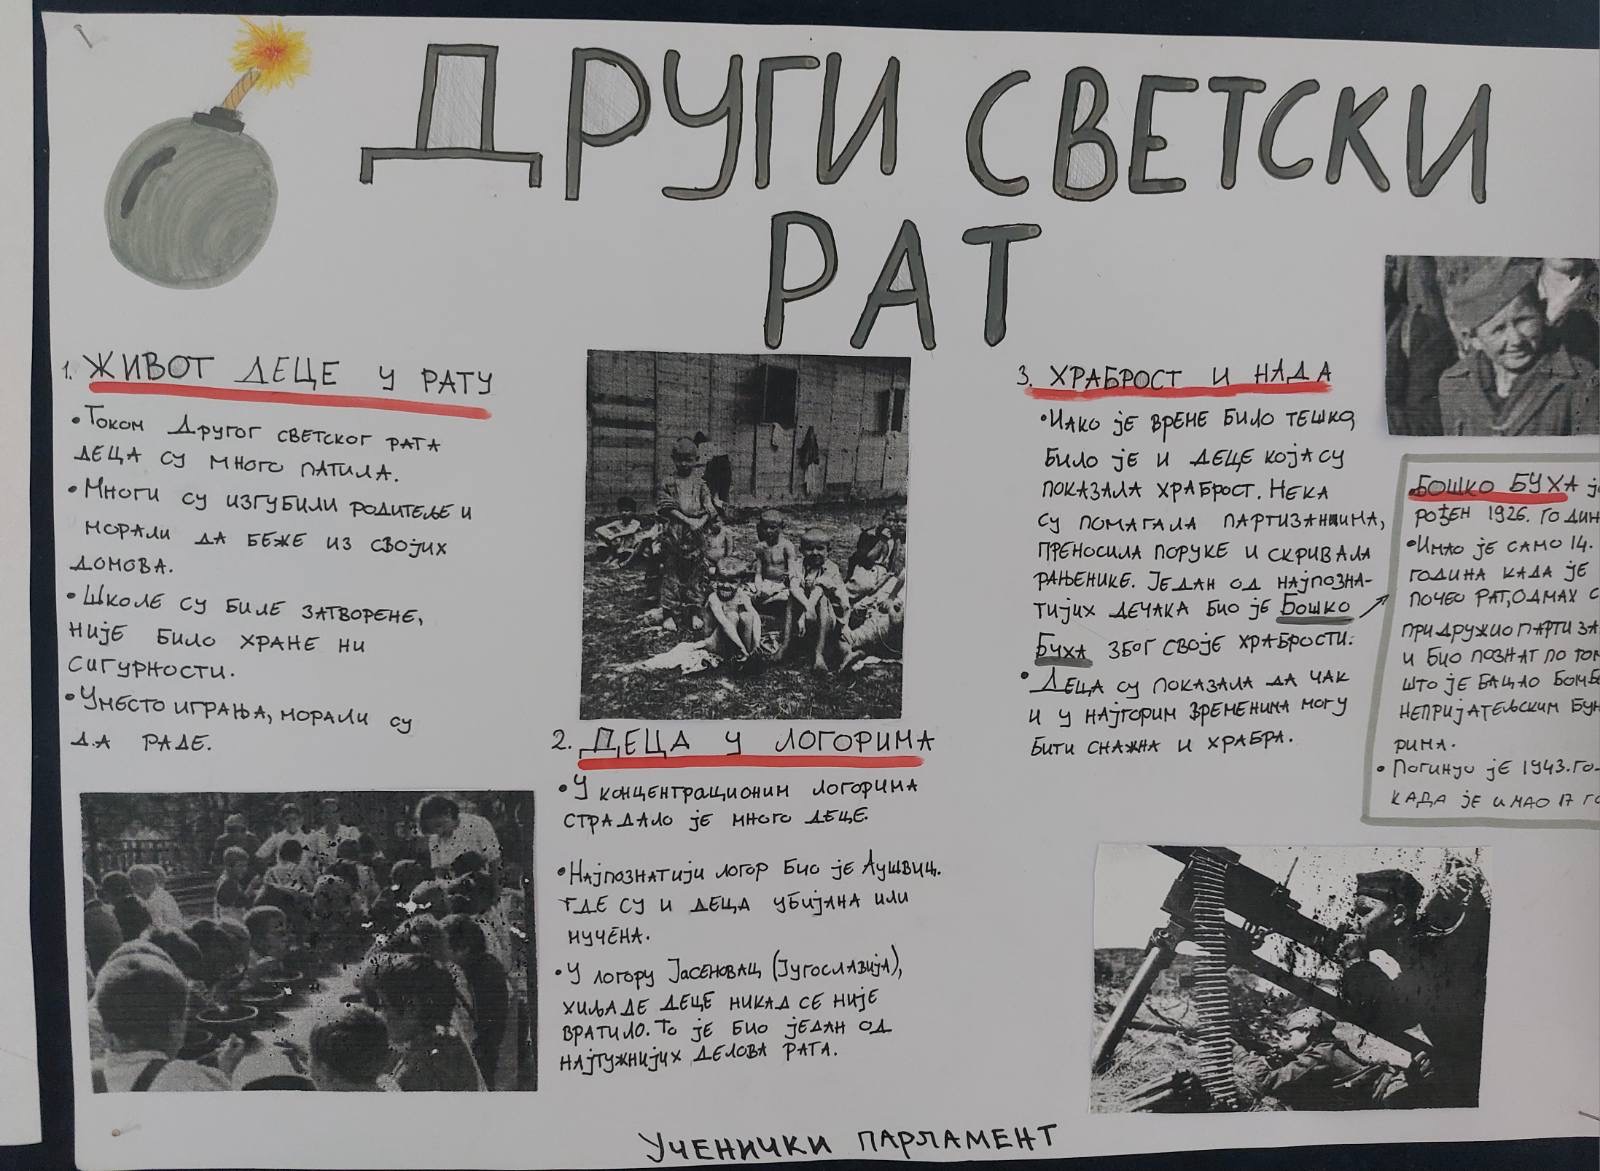 ДРУГИ СВЕТСКИ
РАТ
1. ЖИВОТ ДЕЦЕ У РАТУ
• Током Другог светског рата
деца су много патила.
• Многи су изгубили родитеље и
морали да беже из својих
домова.
• Школе су биле затворене,
није било хране ни
сигурности.
• Уместо играња, морали су
да раде.
2. ДЕЦА У ЛОГОРИМА
• У концентрационим логорима
страдало је много деце.
• Најпознатији логор био је Аушвиц.
где су и деца убијана или
мучена.
• У логору Јасеновац (Југославија),
хиљаде деце никад се није
вратило. То је био један од
најтужнијих делова рата.
3. ХРАБРОСТ И НАДА
• Иако је време било тешко,
било је и деце која су
показала храброст. Нека
су помагала партизанима,
преносила поруке и скривала
рањенике. Један од најпозна-
тијих дечака био је Бошко
Буха због своје храбрости.
• Деца су показала да чак
и у најгорим временима могу
бити снажна и храбра.
• БОШКО БУХА ј
рођен 1926. годин
• Имао је само 14.
година када је
почео рат, одмах с
придружио партиза
и био познат по том
што је бацао бомбе
непријатељским бун
рима.
• Погинуо је 1943. го-
када је имао 17 го
УЧЕНИЧКИ ПАРЛАМЕНТ